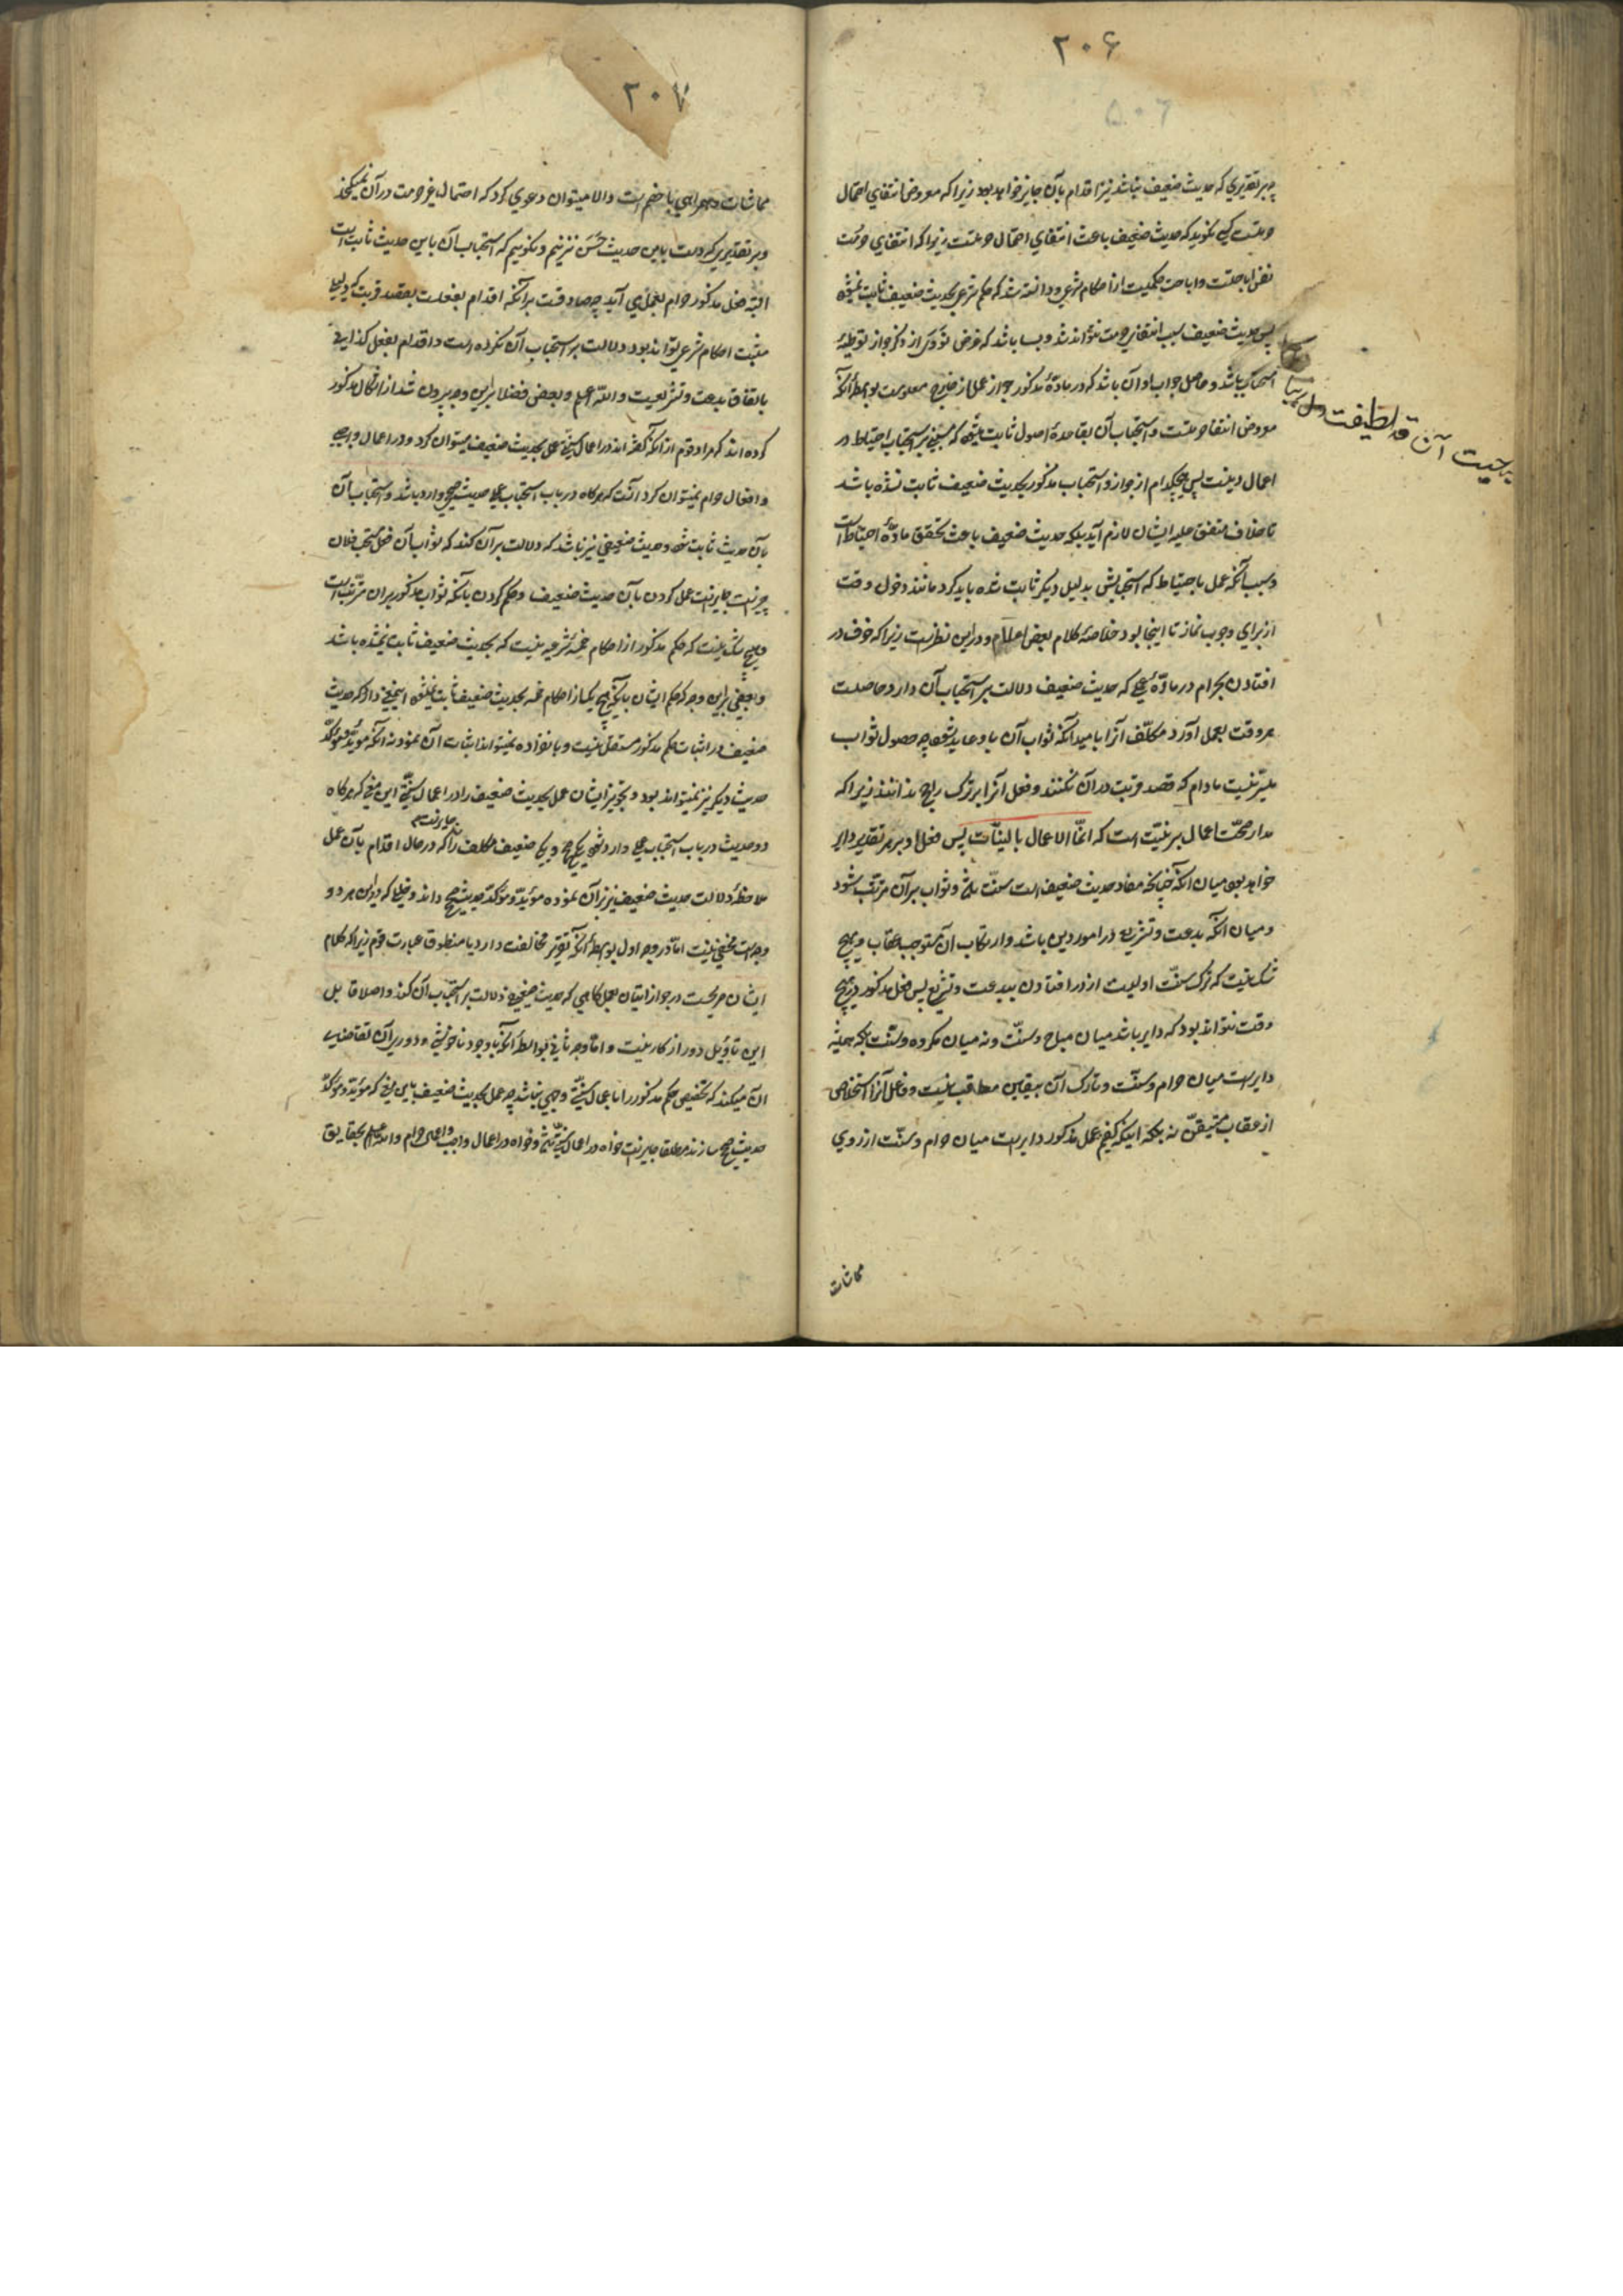 ۲۰۶
چه بر تقدیری که حدیث ضعیف نباشد نیز اقدام بآن جایز خواهد بود زیرا که مفروض انتفای احتمال
حرمتست کسی نگوید که حدیث ضعیف باعث انتفای احتمال حرمتست زیرا که انتفای حرمت
نفس اباحتست و اباحت حکمیست از احکام شرعی و دانسته شد که حکم شرعی بحدیث ضعیف ثابت نمیشود
پس حدیث ضعیف سبب انتفای حرمت نتواند شد و بسا باشد که غرض نووی از ذکر جواز توطیهٔ
استحباب باشد و حاصل جواب او آن باشد که در مادهٔ مذکور جواز عمل از خارج معلومست بواسطهٔ آنکه
مفروض انتفاء حرمتست و استحباب آن بقاعدهٔ اصول ثابت میشود که مبنی بر استحباب احتیاط در
اعمال دینست پس هیچکدام از جواز و استحباب مذکور بحدیث ضعیف ثابت نشده باشد
تا خلاف متفق علیه ایشان لازم آید بلکه حدیث ضعیف باعث تحقق مادهٔ احتیاط است
و سبب آنکه عمل باحتیاط که استحبابش بدلیل دیگر ثابت شده باید کرد مانند دخول وقت
از برای وجوب نماز تا اینجا بود خلاصهٔ کلام بعض اعلام و در این نظرست زیرا که خوف در
افتادن بحرام در مادهٔ عملی که حدیث ضعیف دلالت بر استحباب آن دارد حاصلست
هر وقت بعمل آورد مکلّف آنرا بامید آنکه ثواب آن باو عاید شود چه حصول ثواب
میسّر نیست مادام که قصد قربت در آن نکنند و فعل آنرا بر ترک راجح ندانند زیرا که
مدار صحّت اعمال بر نیّت است که انّما الاعمال بالنیّات پس فعل او بر هر تقدیر دایر
خواهد بود میان آنکه چنانچه مفاد حدیث ضعیف است سنّت باشد و ثواب بر آن مترتّب شود
و میان آنکه بدعت و تشریع در امور دین باشد و ارتکاب آن مستوجب عقاب و هیچ
شک نیست که ترک سنّت اولیست از در افتادن ببدعت و تشریع پس فعل مذکور در هیچ
وقت نتواند بود که دایر باشد میان مباح و سنّت و نه میان مکروه و سنّت بلکه همیشه
دایرست میان حرام و سنّت و تارک آن بیقین معاقب نیست و فاعل آنرا استخلاص
از عقاب متیقّن نه بلکه اینکه گفتیم عمل مذکور دایرست میان حرام و سنّت از روی
مماشات
۲۰۷
مماشات و همراهی با خصم است و الا میتوان دعوی کرد که احتمال غیر حرمت در آن نمیگنجد
و بر تقدیری که دست باین حدیث حَسَن نزنیم و نگوییم که استحباب آن باین حدیث ثابت است
البته فعل مذکور حرام بعمل می آید چه صادقست بر آنکه اقدام بفعلست بقصد قربت که دلیلی
مثبت احکام شرعی تواند بود دلالت بر استحباب آن نکرده است و اقدام بفعل کذایی
باتفاق بدعت و تشریعیست والله اعلم و بعضی فضلا براین وجه بیرون شد از اشکال مذکور
کرده اند که مراد قوم از آنکه گفته اند در اعمال سنّتی عمل بحدیث ضعیف میتوان کرد و در اعمال واجبی
و افعال حرام نمیتوان کرد آنست که هر گاه در باب استحباب عملی حدیث صحیح وارد باشد و استحباب آن
بآن حدیث ثابت شود و حدیث ضعیفی نیز باشد که دلالت بر آن کند که ثواب آن فعل مستحب فلان
چیزست جایزست عمل کردن بآن حدیث ضعیف و حکم کردن بآنکه ثواب مذکور بر آن مترتّب است
و هیچ شک نیست که حکم مذکور از احکام خمسهٔ شرعیه نیست که بحدیث ضعیف ثابت نشده باشد
و بعضی براین وجه که حکم ایشان بآنکه هیچ یک از احکام خمسه بحدیث ضعیف ثابت نمیشود این معنی دارد که حدیث
ضعیف در اثبات حکم مذکور مستقل نیست و بانفراده نمیتواند اثبات آن نمود نه آنکه مؤیّد و مؤکّد
حدیث دیگر نیز نمیتواند بود و تجویز ایشان عمل بحدیث ضعیف را در اعمال سنّتی این معنی که هر گاه
دو حدیث در باب استحباب عملی وارد شود یکی صحیح و یکی ضعیف مکلف را جایزست که در حال اقدام بآن عمل
ملاحظهٔ دلالت حدیث ضعیف نیز بر آن نموده مؤیّد و مؤکّد حدیث صحیح داند و خللی که در این هر دو
وجه است مخفی نیست امّا در وجه اول بواسطهٔ آنکه مخالفت دارد با منطوق عبارت قوم زیرا که کلام
ایشان صریحست در جواز اتیان بعملی که حدیث ضعیف دلالت بر استحباب آن کند و اصلا قابل
این تاویل دور از کار نیست و امّا وجه ثانی بواسطهٔ آنکه با وجود ناخوشی و دوری آن تقاضای
آن میکند که تخصیص حکم مذکور را باعمال سنّتی وجهی نباشد چه عمل بحدیث ضعیف باین معنی که مؤیّد و مؤکّد
حدیث صحیح سازند مطلقا جایزست خواه در اعمال سنّتی و خواه در اعمال واجب و اعمال حرام والله اعلم بحقایق